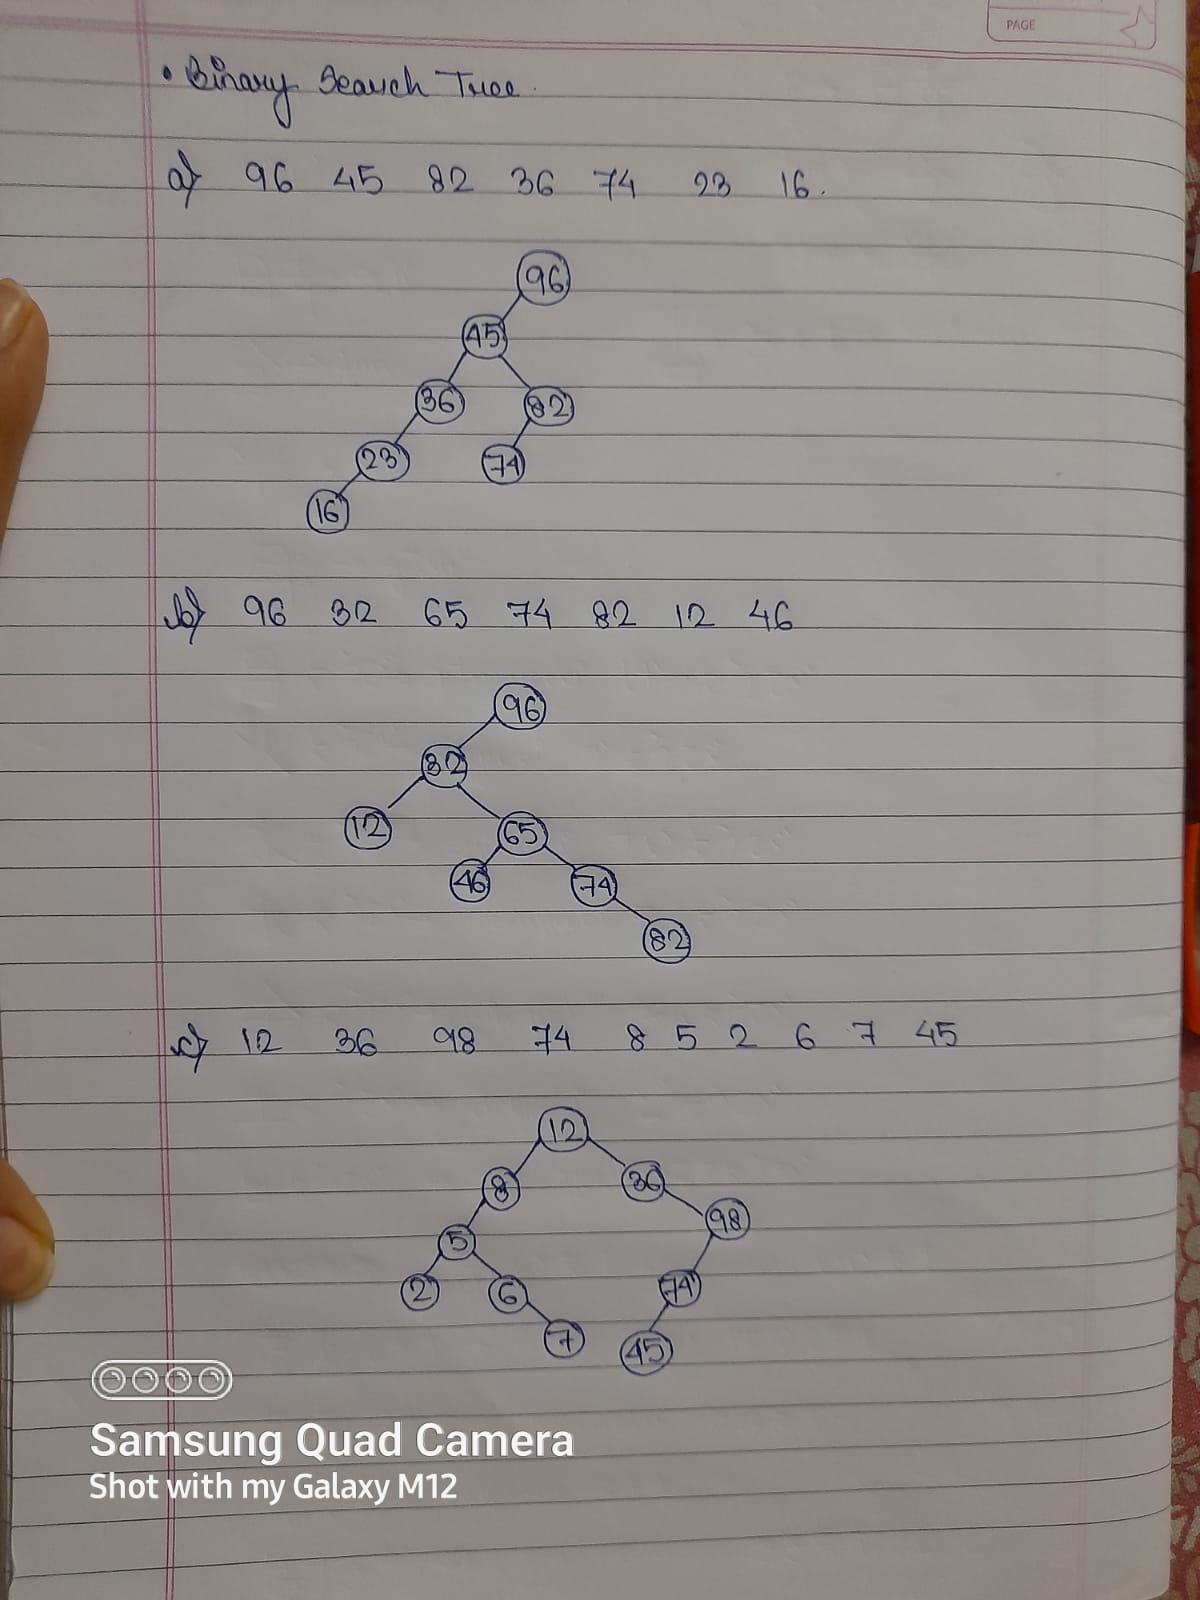 PAGE
• Binary Search Tree.
a) 96 45 82 36 74 23 16.
96
45
36 82
23 74
16
b) 96 32 65 74 82 12 46
96
32
12 65
46 74
82
c) 12 36 98 74 8 5 2 6 7 45
12
8 36
98
5
2 6 74
7 45
Samsung Quad Camera
Shot with my Galaxy M12